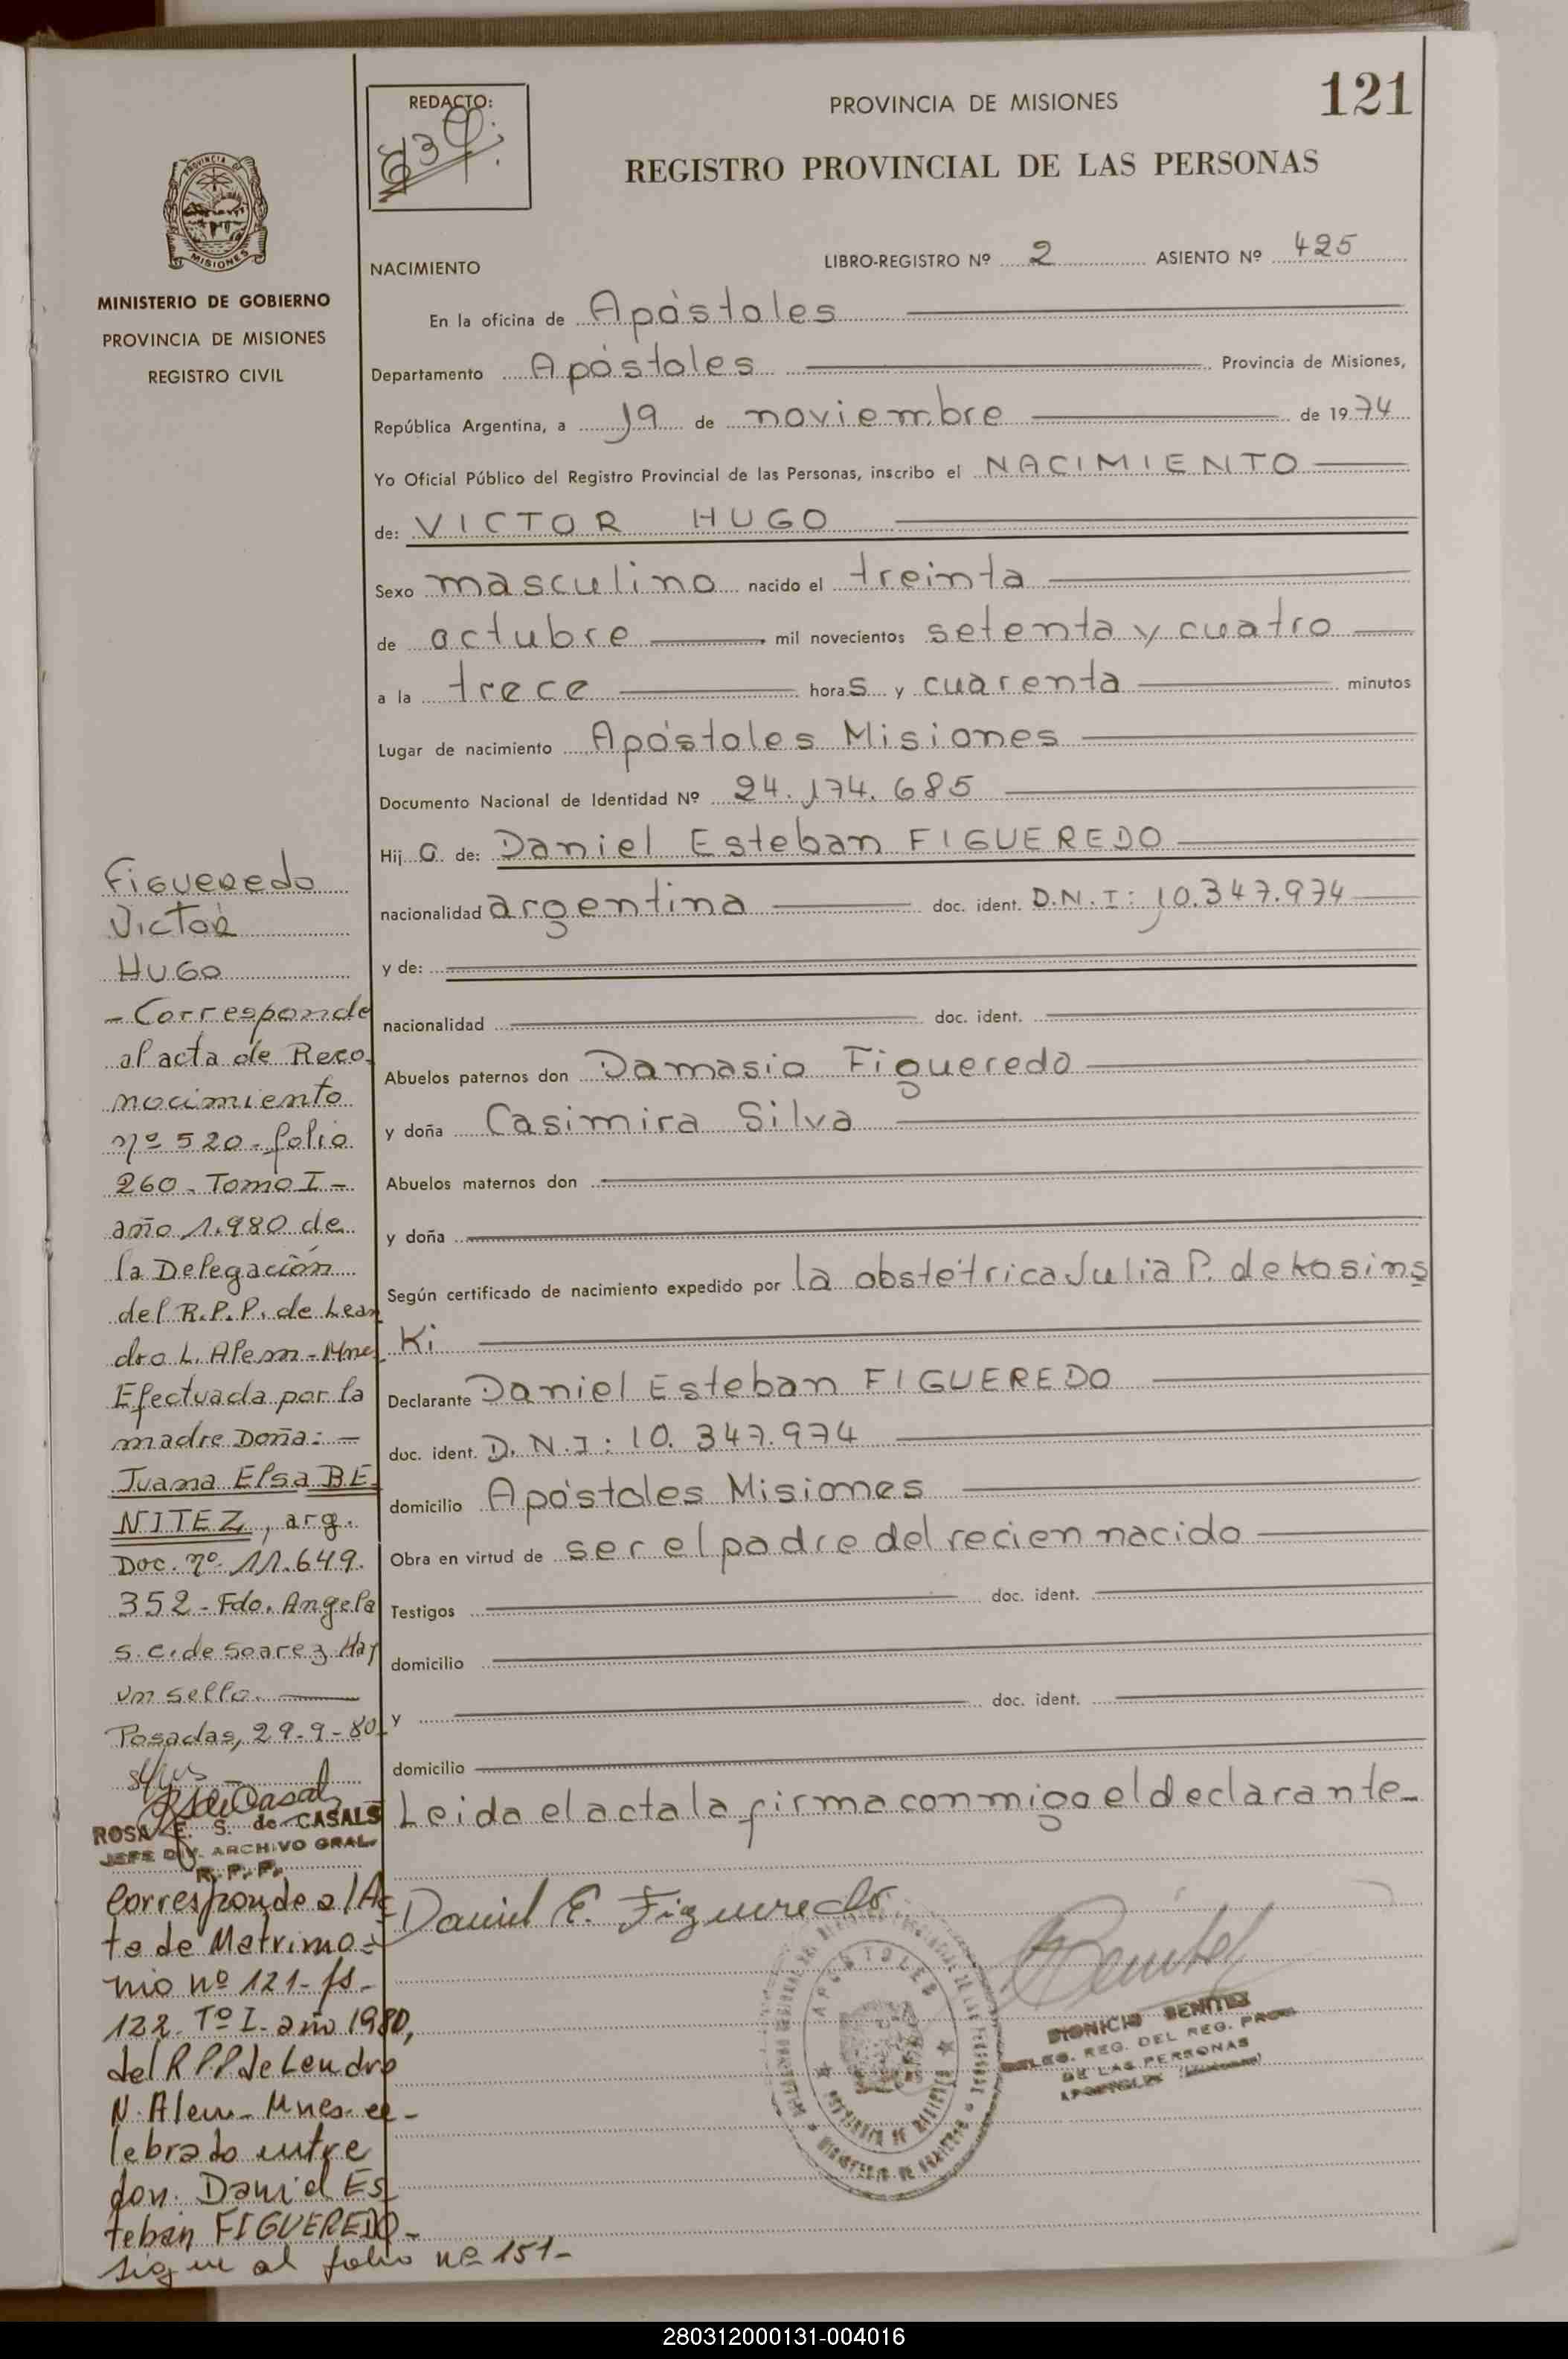 121
REDACTO:
PROVINCIA DE MISIONES
REGISTRO PROVINCIAL DE LAS PERSONAS
PROVINCIA DE
MISIONES
MINISTERIO DE GOBIERNO
PROVINCIA DE MISIONES
REGISTRO CIVIL
NACIMIENTO LIBRO-REGISTRO Nº 2 ASIENTO Nº 425
En la oficina de Apóstoles
Departamento Apóstoles Provincia de Misiones,
República Argentina, a 19 de noviembre de 1974
Yo Oficial Público del Registro Provincial de las Personas, inscribo el NACIMIENTO
de: VICTOR HUGO
Sexo masculino nacido el treinta
de octubre mil novecientos setenta y cuatro
a la trece horas y cuarenta minutos
Lugar de nacimiento Apóstoles Misiones
Documento Nacional de Identidad Nº 24.174.685
Hijo de: Daniel Esteban FIGUEREDO
nacionalidad argentina doc. ident. D.N.I: 10.347.974
y de:
nacionalidad doc. ident.
Abuelos paternos don Damasio Figueredo
y doña Casimira Silva
Abuelos maternos don
y doña
Según certificado de nacimiento expedido por la obstétrica Julia P. de Kosins
Ki
Declarante Daniel Esteban FIGUEREDO
doc. ident. D.N.I: 10.347.974
domicilio Apóstoles Misiones
Obra en virtud de ser el padre del recien nacido
Testigos doc. ident.
domicilio
y doc. ident.
domicilio
Leida el acta la firma conmigo el declarante-
Daniel E. Figueredo
APOSTOLES
DIONICIO BENITEZ
DELEG. REG. DEL REG. PROV.
DE LAS PERSONAS
Figueredo
Victor
Hugo
- Corresponde
al acta de Reco-
nocimiento
nº 520 - folio
260 - Tomo I -
año 1.980 de
la Delegación
del R.P.P. de Lean
dro L. Alem - Mnes
Efectuada por la
madre Doña: -
Juana Elsa BE-
NITEZ, arg.
Doc. nº 11.649.
352 - Fdo. Angela
S. C. de Soarez Hay
un sello.
Posadas, 29-9-80
ROSA E. S. de CASALS
JEFE DIV. ARCHIVO GRAL.
R.P.P.
Corresponde al Ac
ta de Matrimo-
nio nº 121 - fs-
122 - Tº I - año 1980,
del R.P.P de Lendro
N. Alem - Mnes - ce-
lebrado entre
don. Daniel Es
teban FIGUEREDO -
sigue al folio nº 151-
280312000131-004016